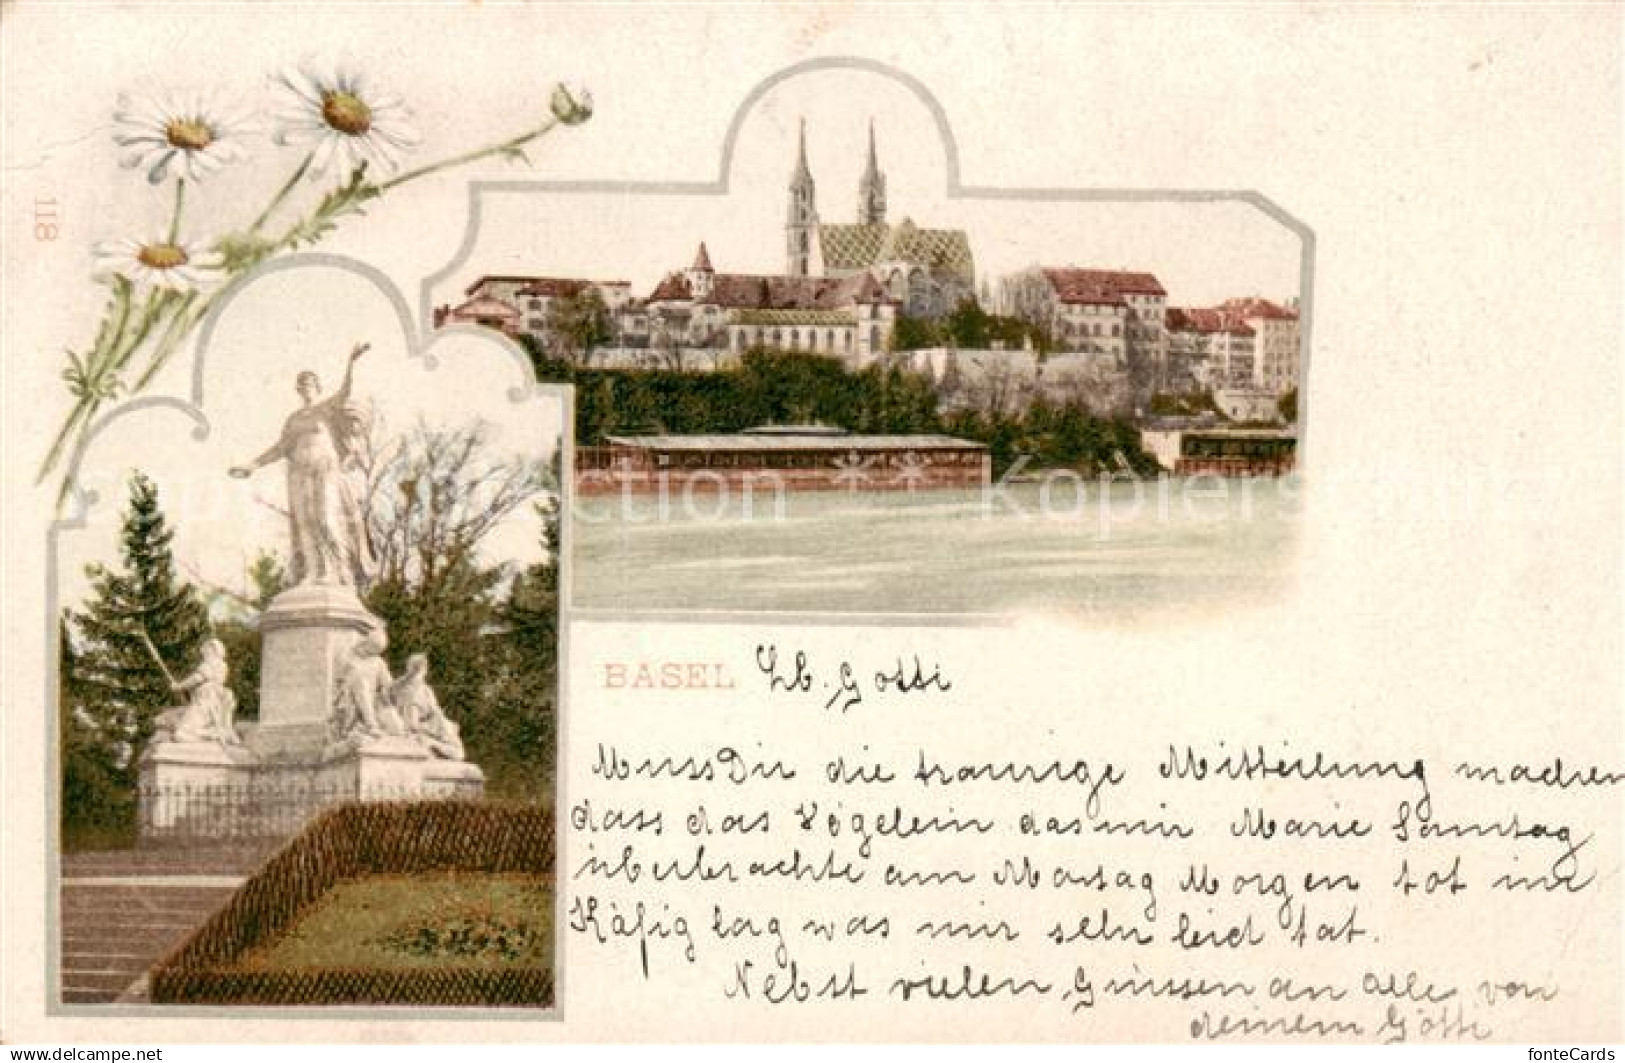 118
BASEL Lb. Gotti
Muss Dir die traurige Mitteilung machen
dass das Vögelein das mir Marie Samstag
überbrachte am Montag Morgen tot im
Käfig lag was mir sehr leid tat.
Nebst vielen Grüssen an alle von
deinem Götti
fonteCards